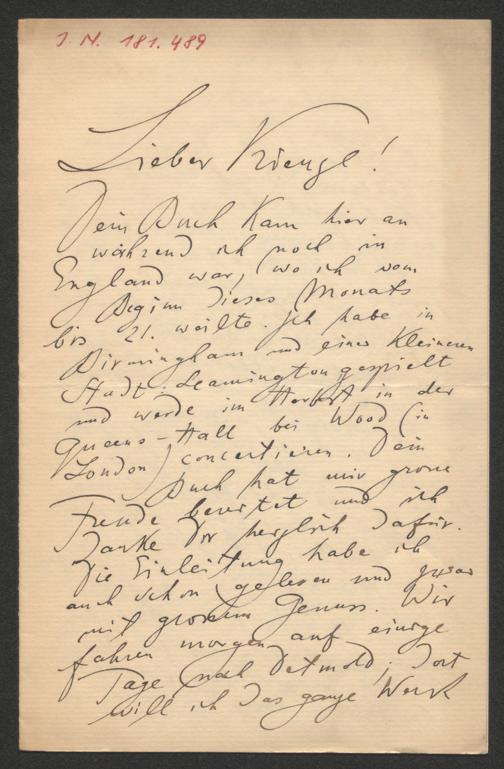 J. N. 181.489
Lieber Kienzl!
Dein Buch kam hier an
während ich noch in
England war, (wo ich vom
Beginn dieses Monats
bis 21. weilte. Ich habe in
Birmingham und einer kleineren
Stadt: Leamington gespielt
und werde im Herbst in der
Queens-Hall bei Wood (in
London) concertieren. Dein
Buch hat mir grosse
Freude bereitet und ich
danke Dir herzlich dafür.
Die Einleitung habe ich
auch schon gelesen und zwar
mit grossem Genuss. Wir
fahren morgen auf einige
Tage nach Detmold, dort
will ich das ganze Werk